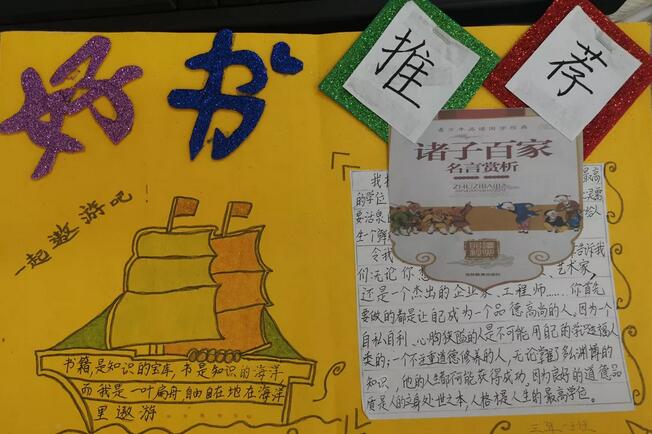 好书
推荐
一起遨游吧
青少年品读国学经典
诸子百家
名言赏析
ZHUZIBAIJIA
书籍是知识的宝库,书是知识的海洋
而我是一叶扁舟,自由自在地在海洋
里遨游
我
最高
的学位
要沽泉
给人
生个
令我
告诉我
们:无论你想
艺术家,
还是一个杰出的企业家、工程师……你首先
要做的都是让自己成为一个品德高尚的人,因为一个
自私自利、心胸狭隘的人是不可能用自己的学识造福人
类的;一个不注重道德修养的人,无论掌握多么渊博的
知识,他的人生都不可能获得成功。因为良好的道德品
质是人的立身处世之本,人格才是人生的最高学位。